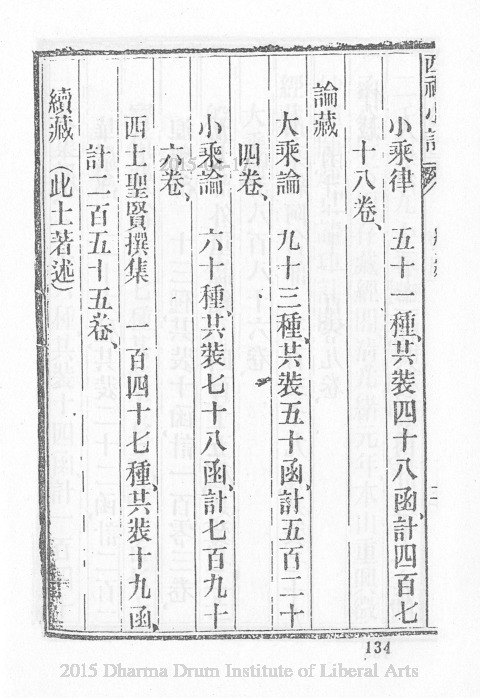 小乘律　五十一種、共裝四十八函、計四百七
十八卷、
論藏
大乘論　九十三種、共裝五十函、計五百二十
四卷、
小乘論　六十種、共裝七十八函、計七百九十
六卷、
西土聖賢撰集　一百四十七種、共裝十九函、
計二百五十五卷、
續藏（此土著述）
134
2015 Dharma Drum Institute of Liberal Arts